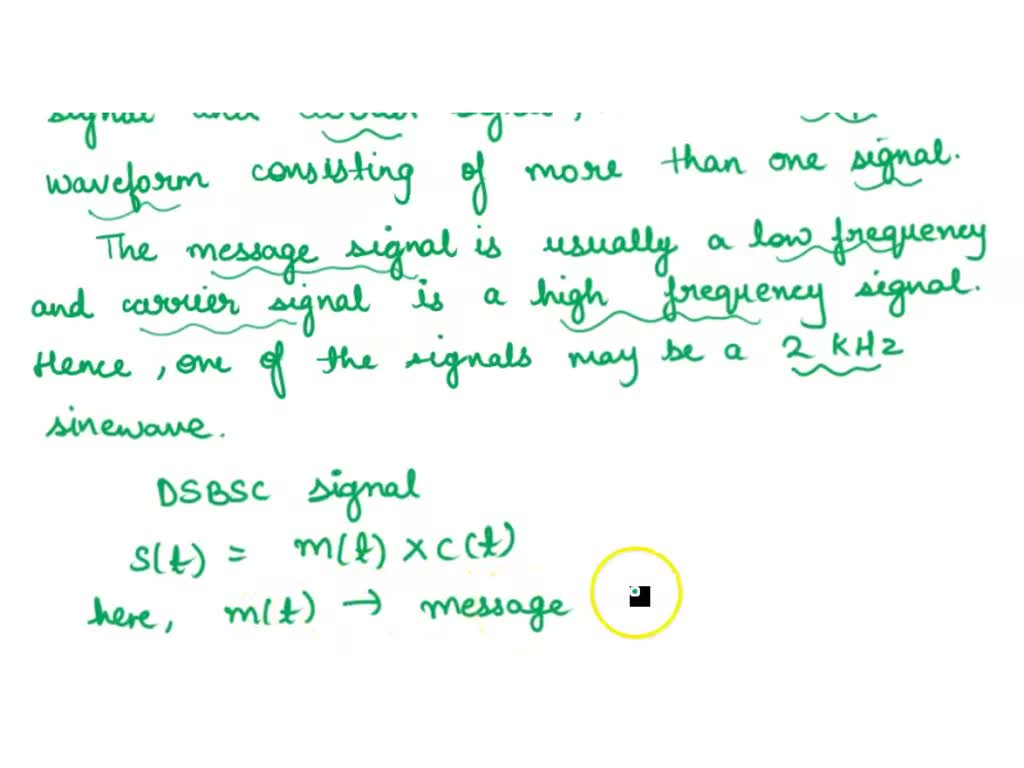 signal and carrier signal,
waveform consisting of more than one signal.
The message signal is usually a low frequency
and carrier signal is a high frequency signal.
Hence, one of the signals may be a 2 KHz
sinewave.
DSBSC signal
S(t) = m(t) × C(t)
here, m(t) → message